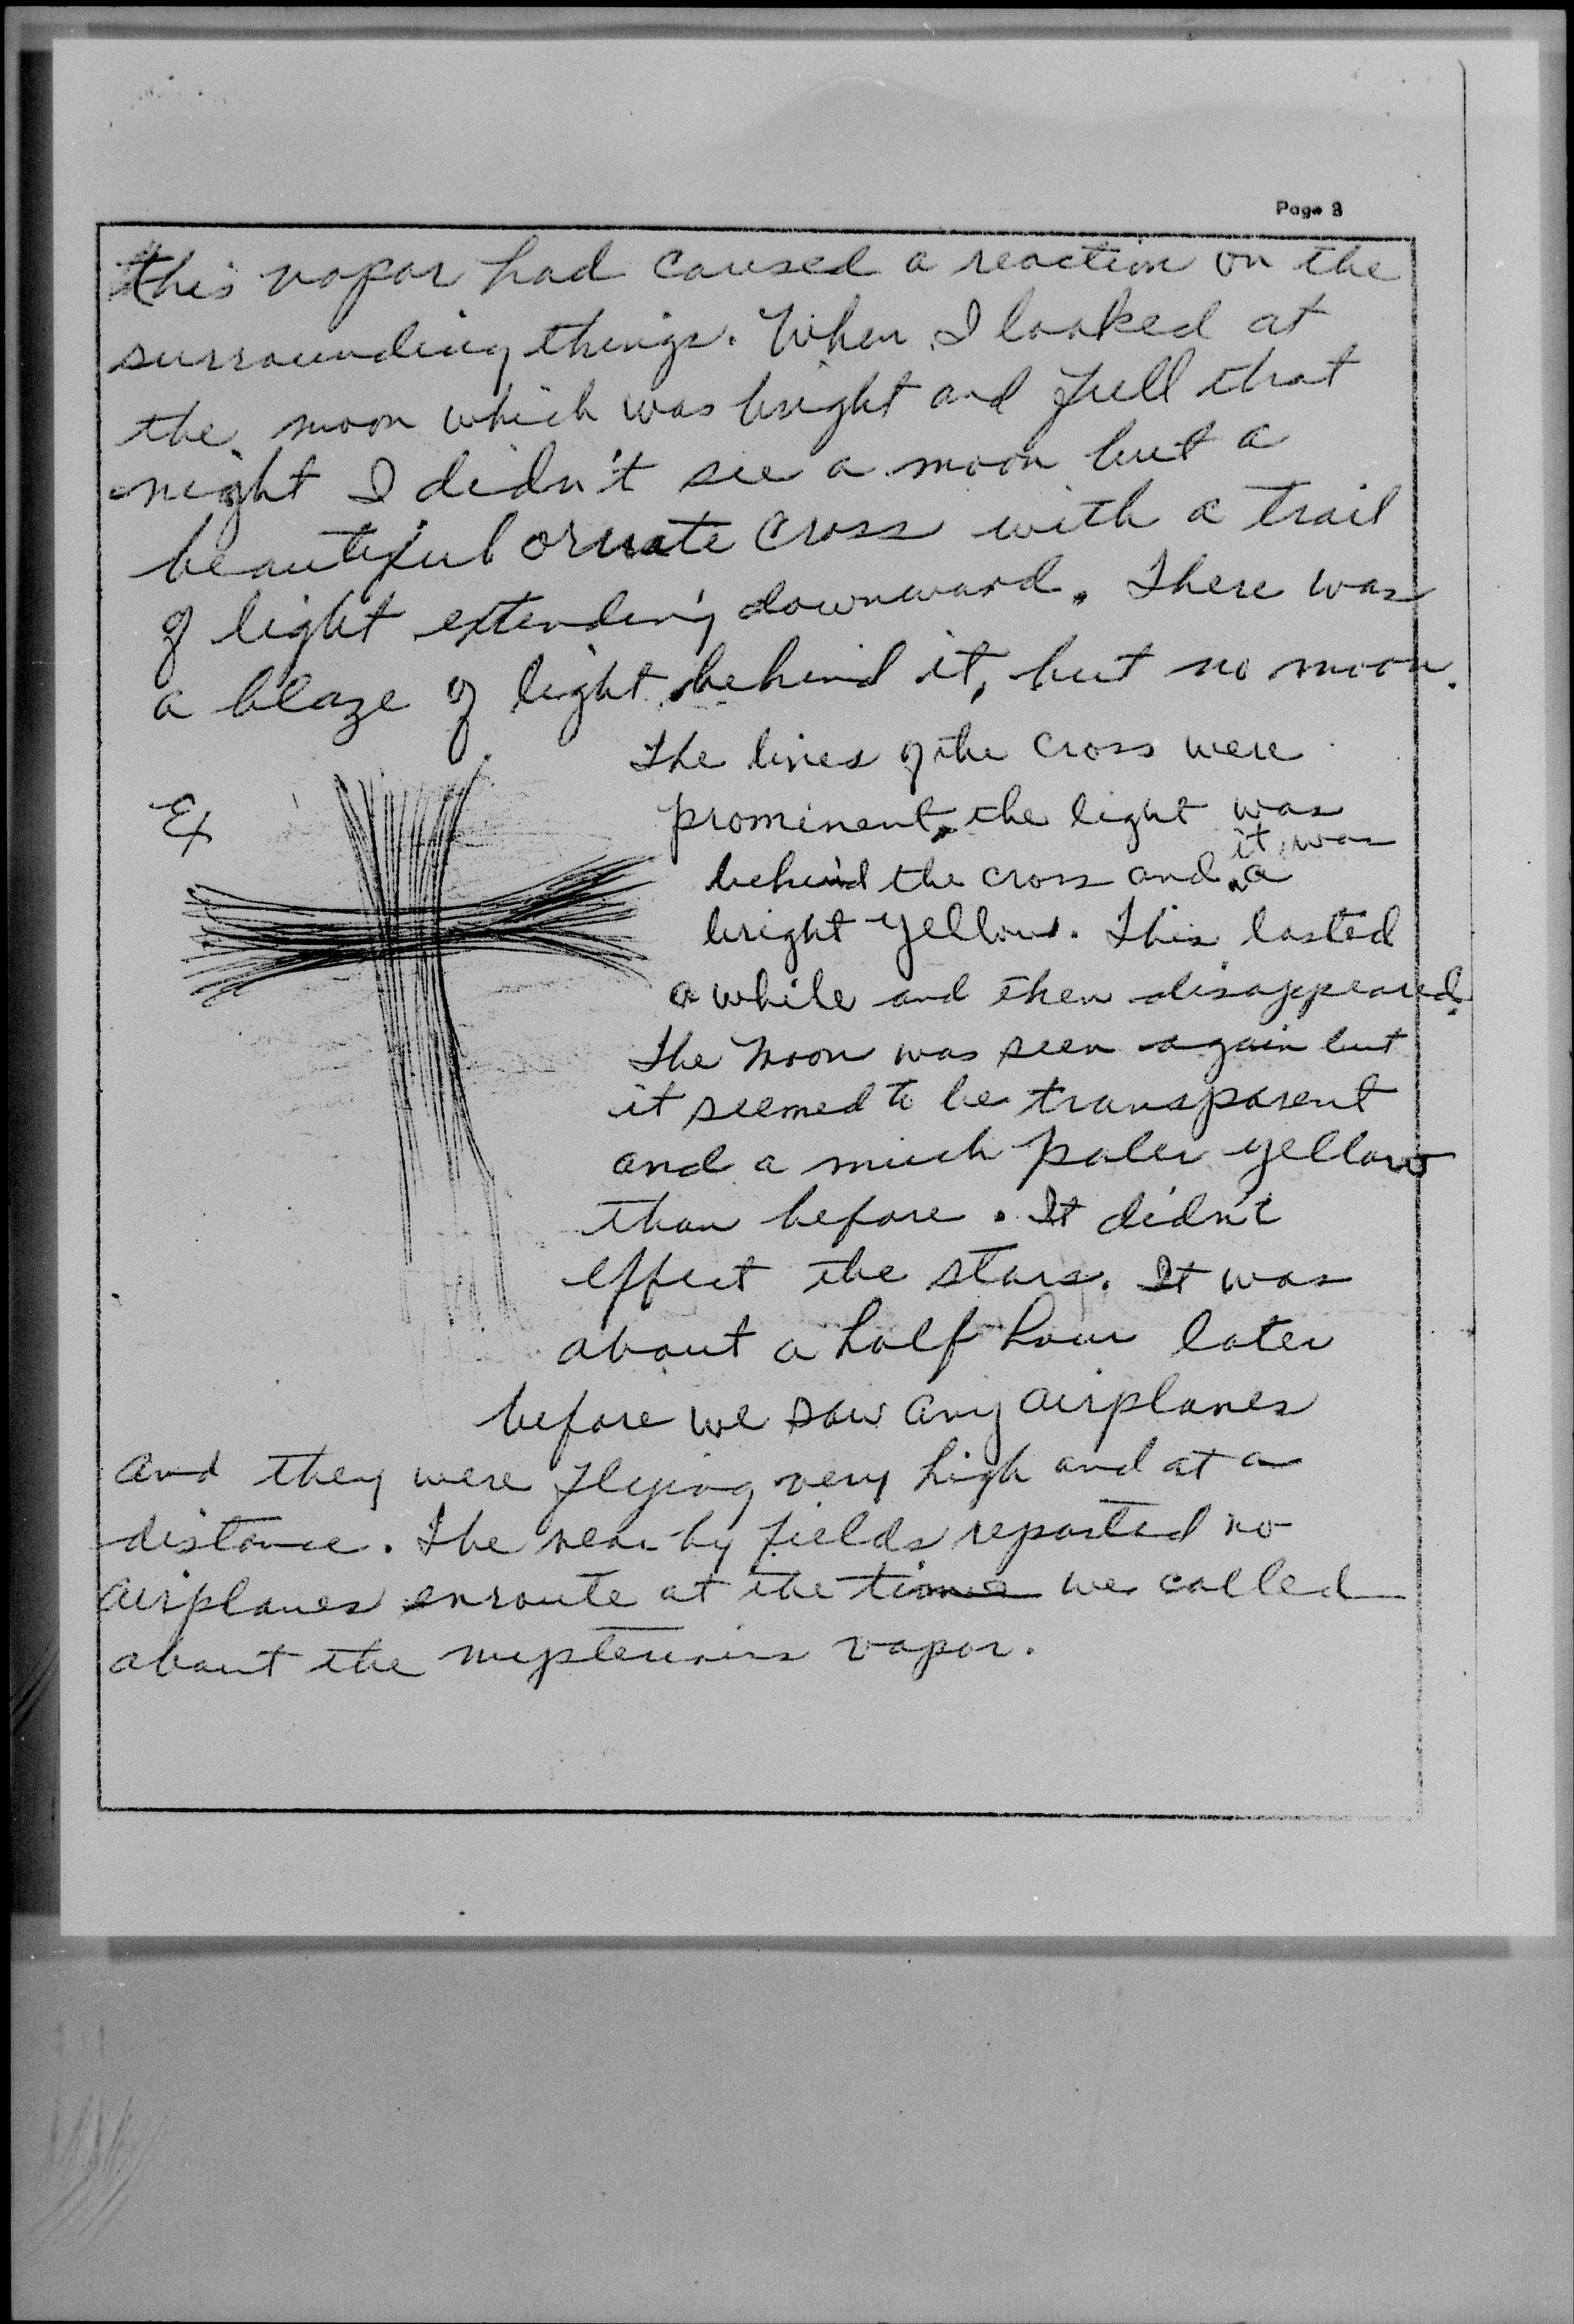 Page 3
this vapor had caused a reaction on the
surrounding things. When I looked at
the moon which was bright and full that
night I didn't see a moon but a
beautiful ornate cross with a trail
of light extending downward. There was
a blaze of light behind it, but no moon.
The lines of the cross were
Ex
prominent, the light was
it was
behind the cross and a
bright yellow. This lasted
a while and then disappeared.
The Moon was seen again but
it seemed to be transparent
and a much paler yellow
than before. It didn't
effect the stars. It was
about a half hour later
before we saw any airplanes
and they were flying very high and at a
distance. The near-by fields reported no
airplanes enroute at the time we called
about the mysterious vapor.